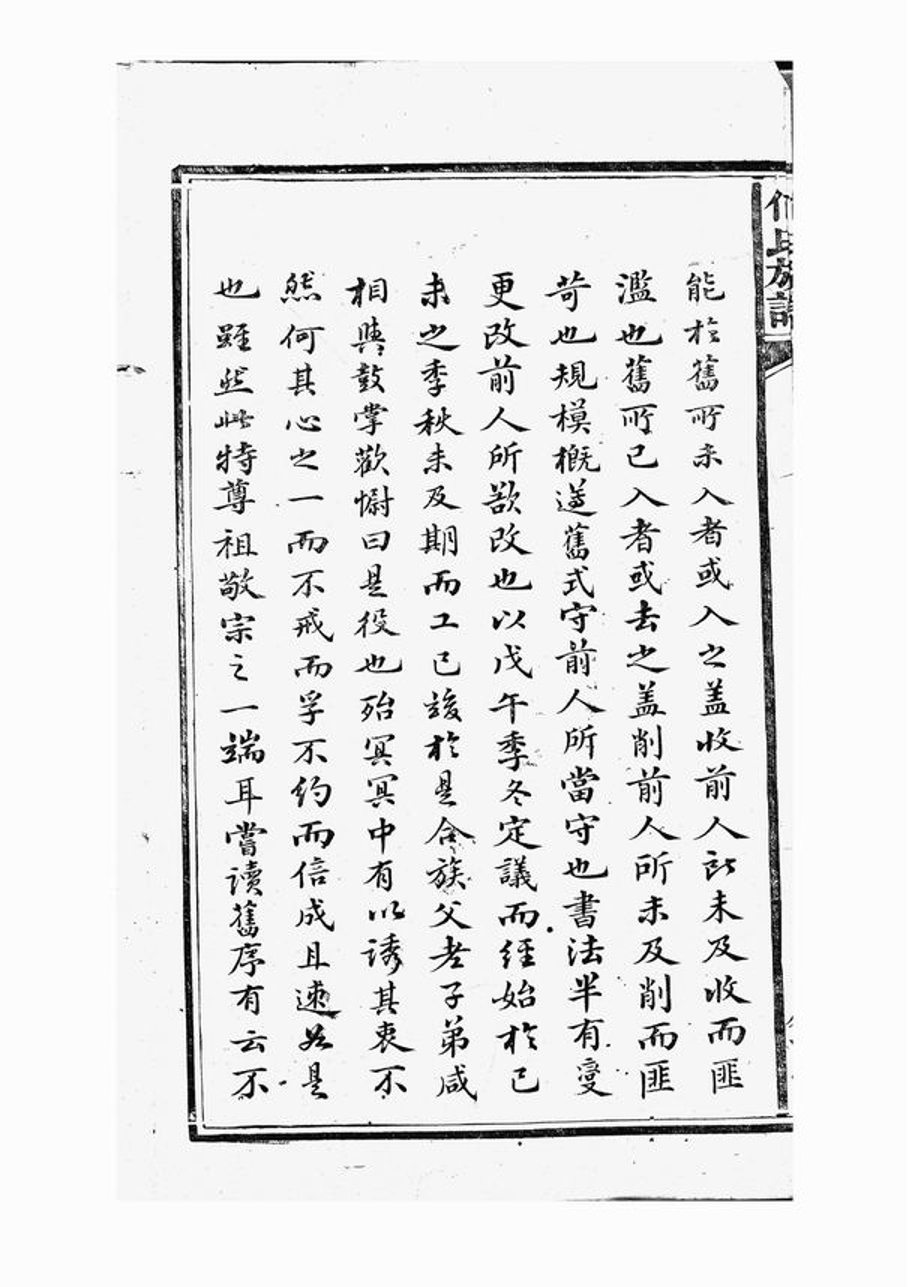 氏族譜
能於舊所未入者或入之盖收前人所未及收而匪
濫也舊所已入者或去之盖削前人所未及削而匪
苛也規模概遵舊式守前人所當守也書法半有變
更改前人所欲改也以戊午季冬定議而經始於己
未之季秋未及期而工已竣於是合族父老子弟咸
相與鼓掌歡慰曰是役也殆冥冥中有以誘其衷不
然何其心之一而不戒而孚不約而信成且速若是
也雖然此特尊祖敬宗之一端耳嘗讀舊序有云不